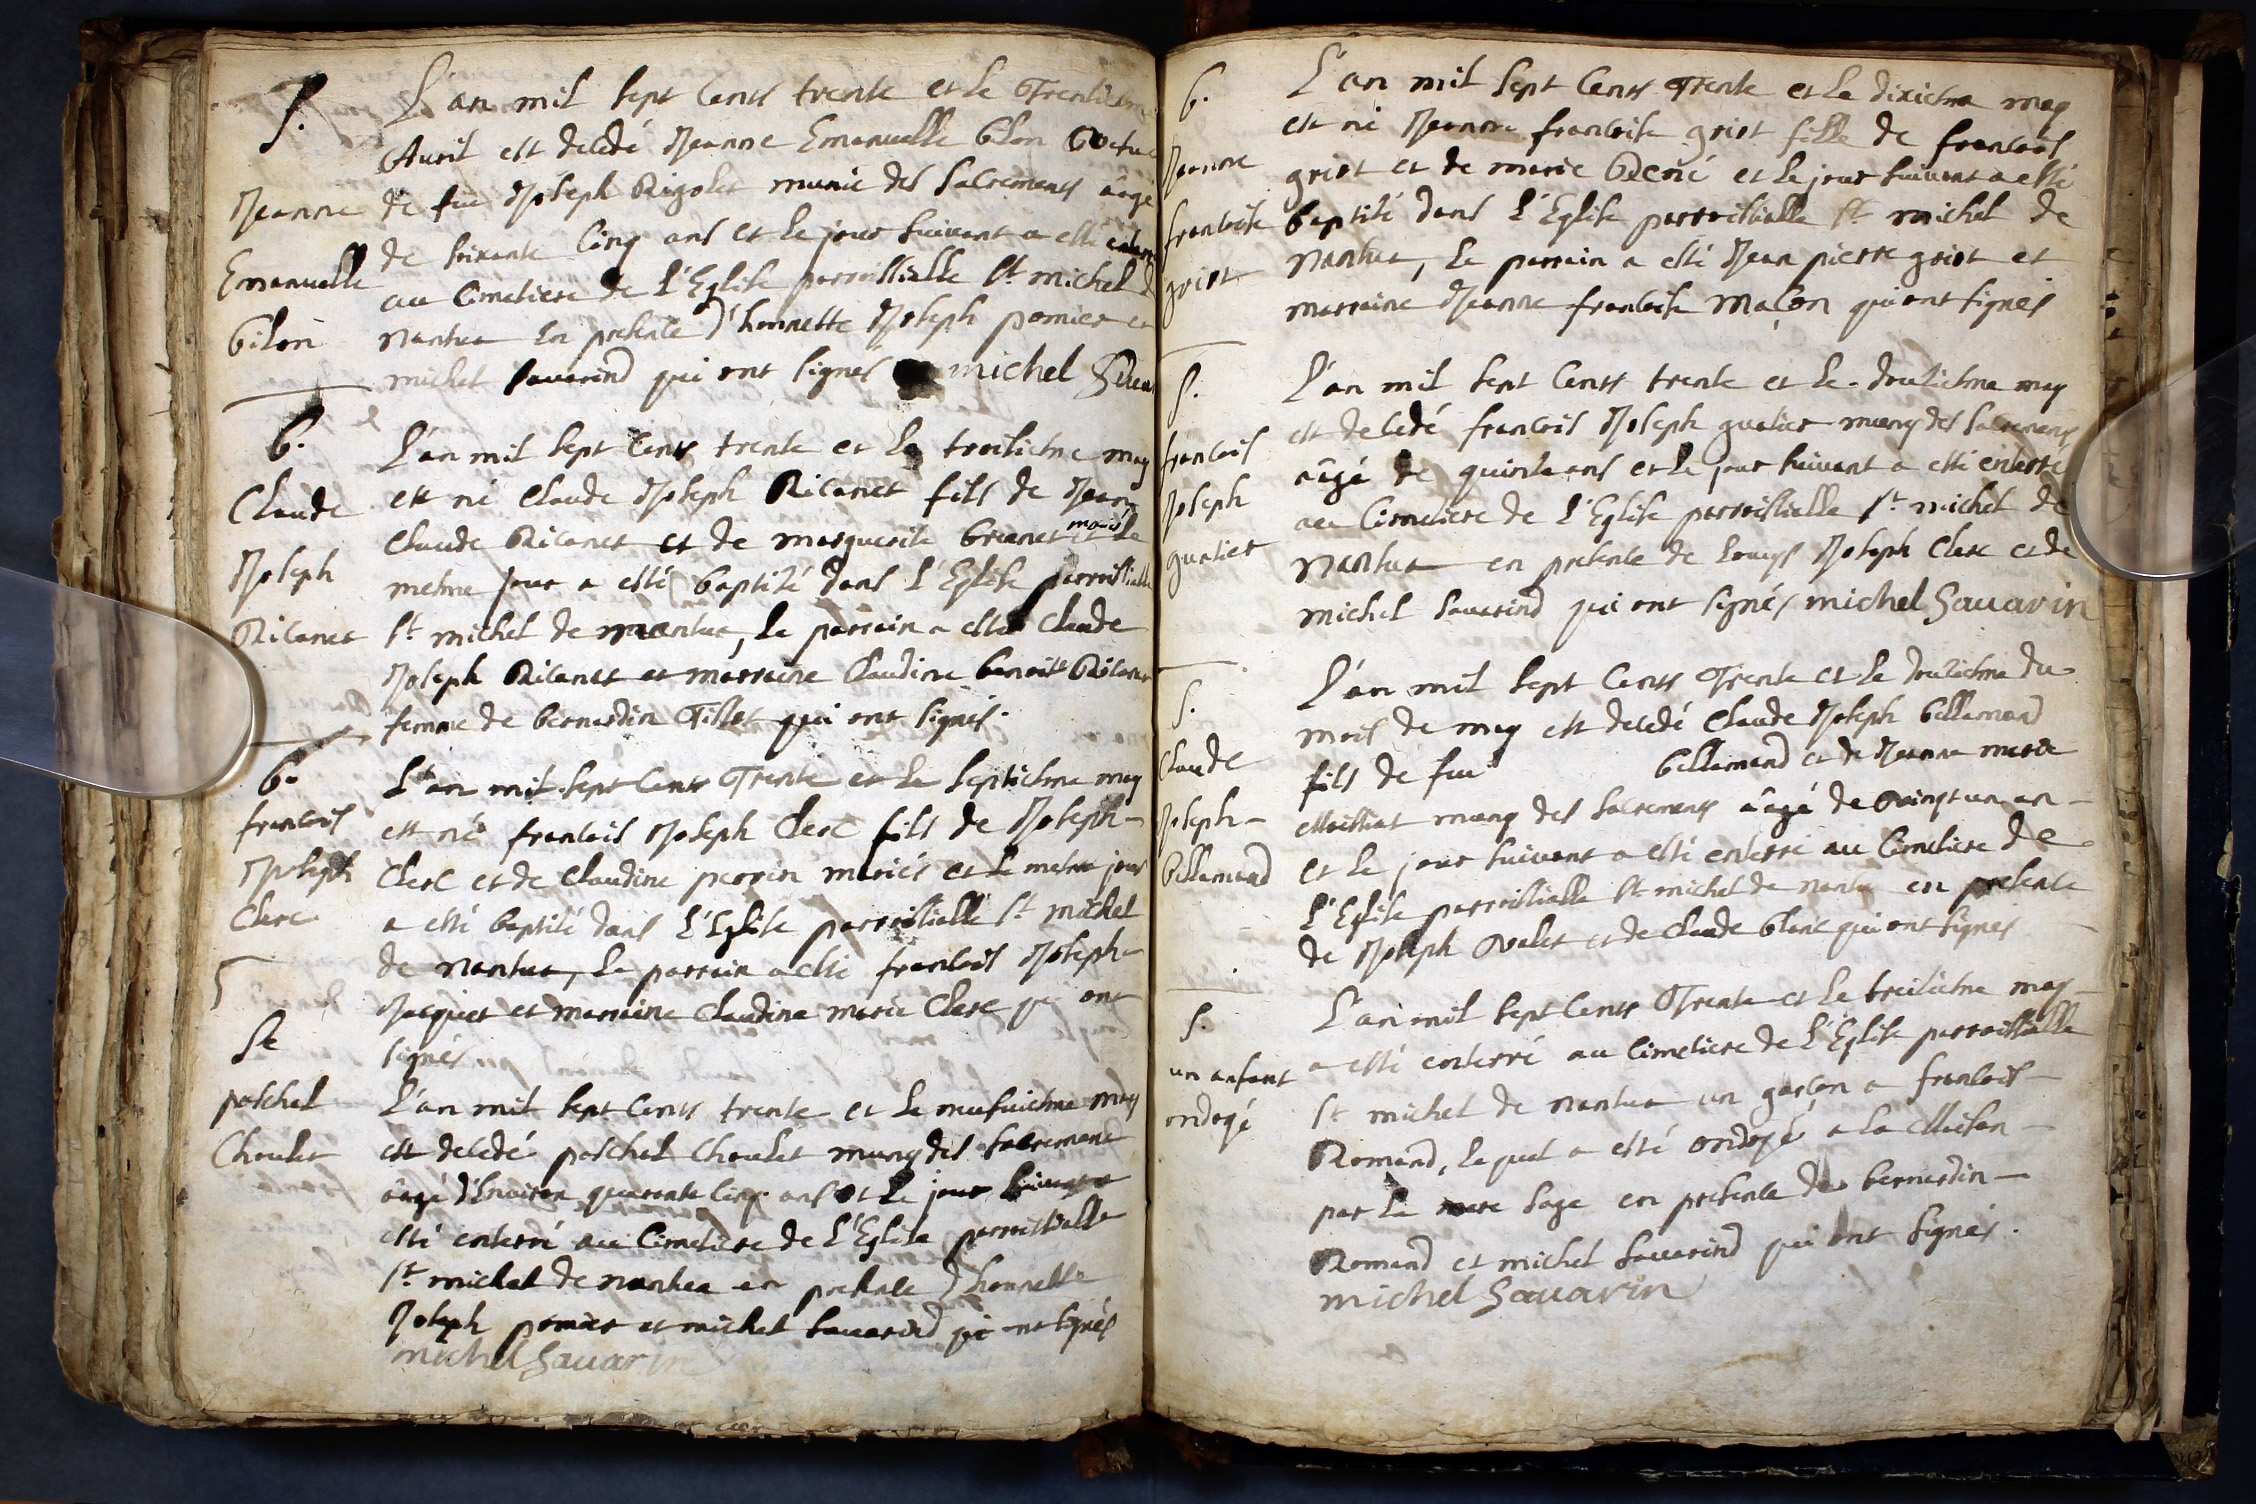 S.
Jeanne
Emanuelle
bilon
L'an mil sept cents trente et le Trentieme
Avril est decedé Jeanne Emanuelle bilon
de fue Joseph Rigolet munie des sacrements âagé
de soixante cinq ans et le jour suivant a esté
au cimetiere de l'Eglise parroissialle St michel
nantua en presence d'honnette Joseph pomier et
michel sauarind qui ont signés michel
b.
Claude
Joseph
Ricanet
L'an mil sept cents trente et le troisiesme may
est né Claude Joseph Ricanet fils de Jean
Claude Ricanet et de marguerite brunet mariés le
mesme jour a esté baptisé dans l'Eglise parroissialle
St michel de nantua, le parrain a esté Claude
Joseph Ricanet et marraine Claudine benoite Ricanet
femme de bernardin Tissot qui ont signés.
b.
francois
Joseph
Clerc
L'an mil sept cents Trente et le septiesme may
est né francois Joseph Clerc fils de Joseph
Clerc et de Claudine perrin mariés et le mesme jour
a esté baptisé dans l'Eglise parroissialle St michel
de nantua, le parrain a esté francois Joseph
Jacquier et marraine Claudine marie Clerc qui ont
signés
S.
paschal
Choulet
L'an mil sept cents trente et le neufuiesme may
est decedé paschal Choulet muny des sacrements
âagé d'enuiron quarante cinq ans et le jour suivant a
esté enterré au cimetiere de l'Eglise parroissialle
St michel de nantua en presence d'honnette
Joseph pomier et michel sauarind qui ont signés
michel Sauarin
b.
Jeanne
francoise
griot
L'an mil sept cents Trente et le dixiesme may
est né Jeanne francoise griot fille de francois
griot et de marie et le jour suivant a esté
baptisé dans l'Eglise parroissialle St michel de
nantua, le parrain a esté Jean pierre griot et
marraine Jeanne francoise maçon qui ont signés
S.
francois
Joseph
gualier
L'an mil sept cents trente et le douziesme may
est decedé francois Joseph gualier muny des sacrements
âagé de quinze ans et le jour suivant a esté enterré
au cimetiere de l'Eglise parroissialle St michel de
nantua en presence de Louys Joseph Clerc et de
michel sauarind qui ont signés michel Sauarin
S.
Claude
Joseph
billemand
L'an mil sept cents Trente et le douziesme du
mois de may est decedé Claude Joseph billemand
fils de fue billemand et de Jeanne marie
muny des sacrements âagé de vingt un an
et le jour suivant a esté enterré au cimetiere de
l'Eglise parroissialle St michel de nantua en presence
de Joseph et de Claude blanc qui ont signés
S.
un enfant
ondoyé
L'an mil sept cents Trente et le treiziesme may
a esté enterré au cimetiere de l'Eglise parroissialle
St michel de nantua un garçon a francois
Romand, lequel a esté ondoyé a la Maison
par la mere sage en presence de bernardin
Romand et michel sauarind qui ont signés.
michel Sauarin